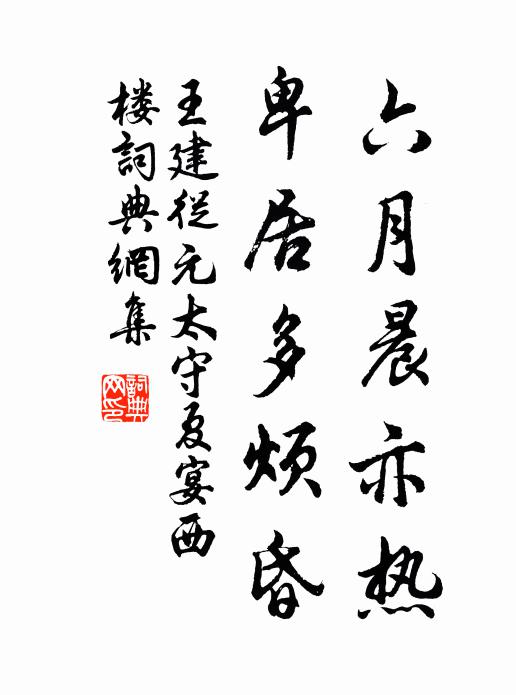 六月晨亦热
卑居多烦昏
王建從元太守夏宴西
楼詞典網集
詞典
网印